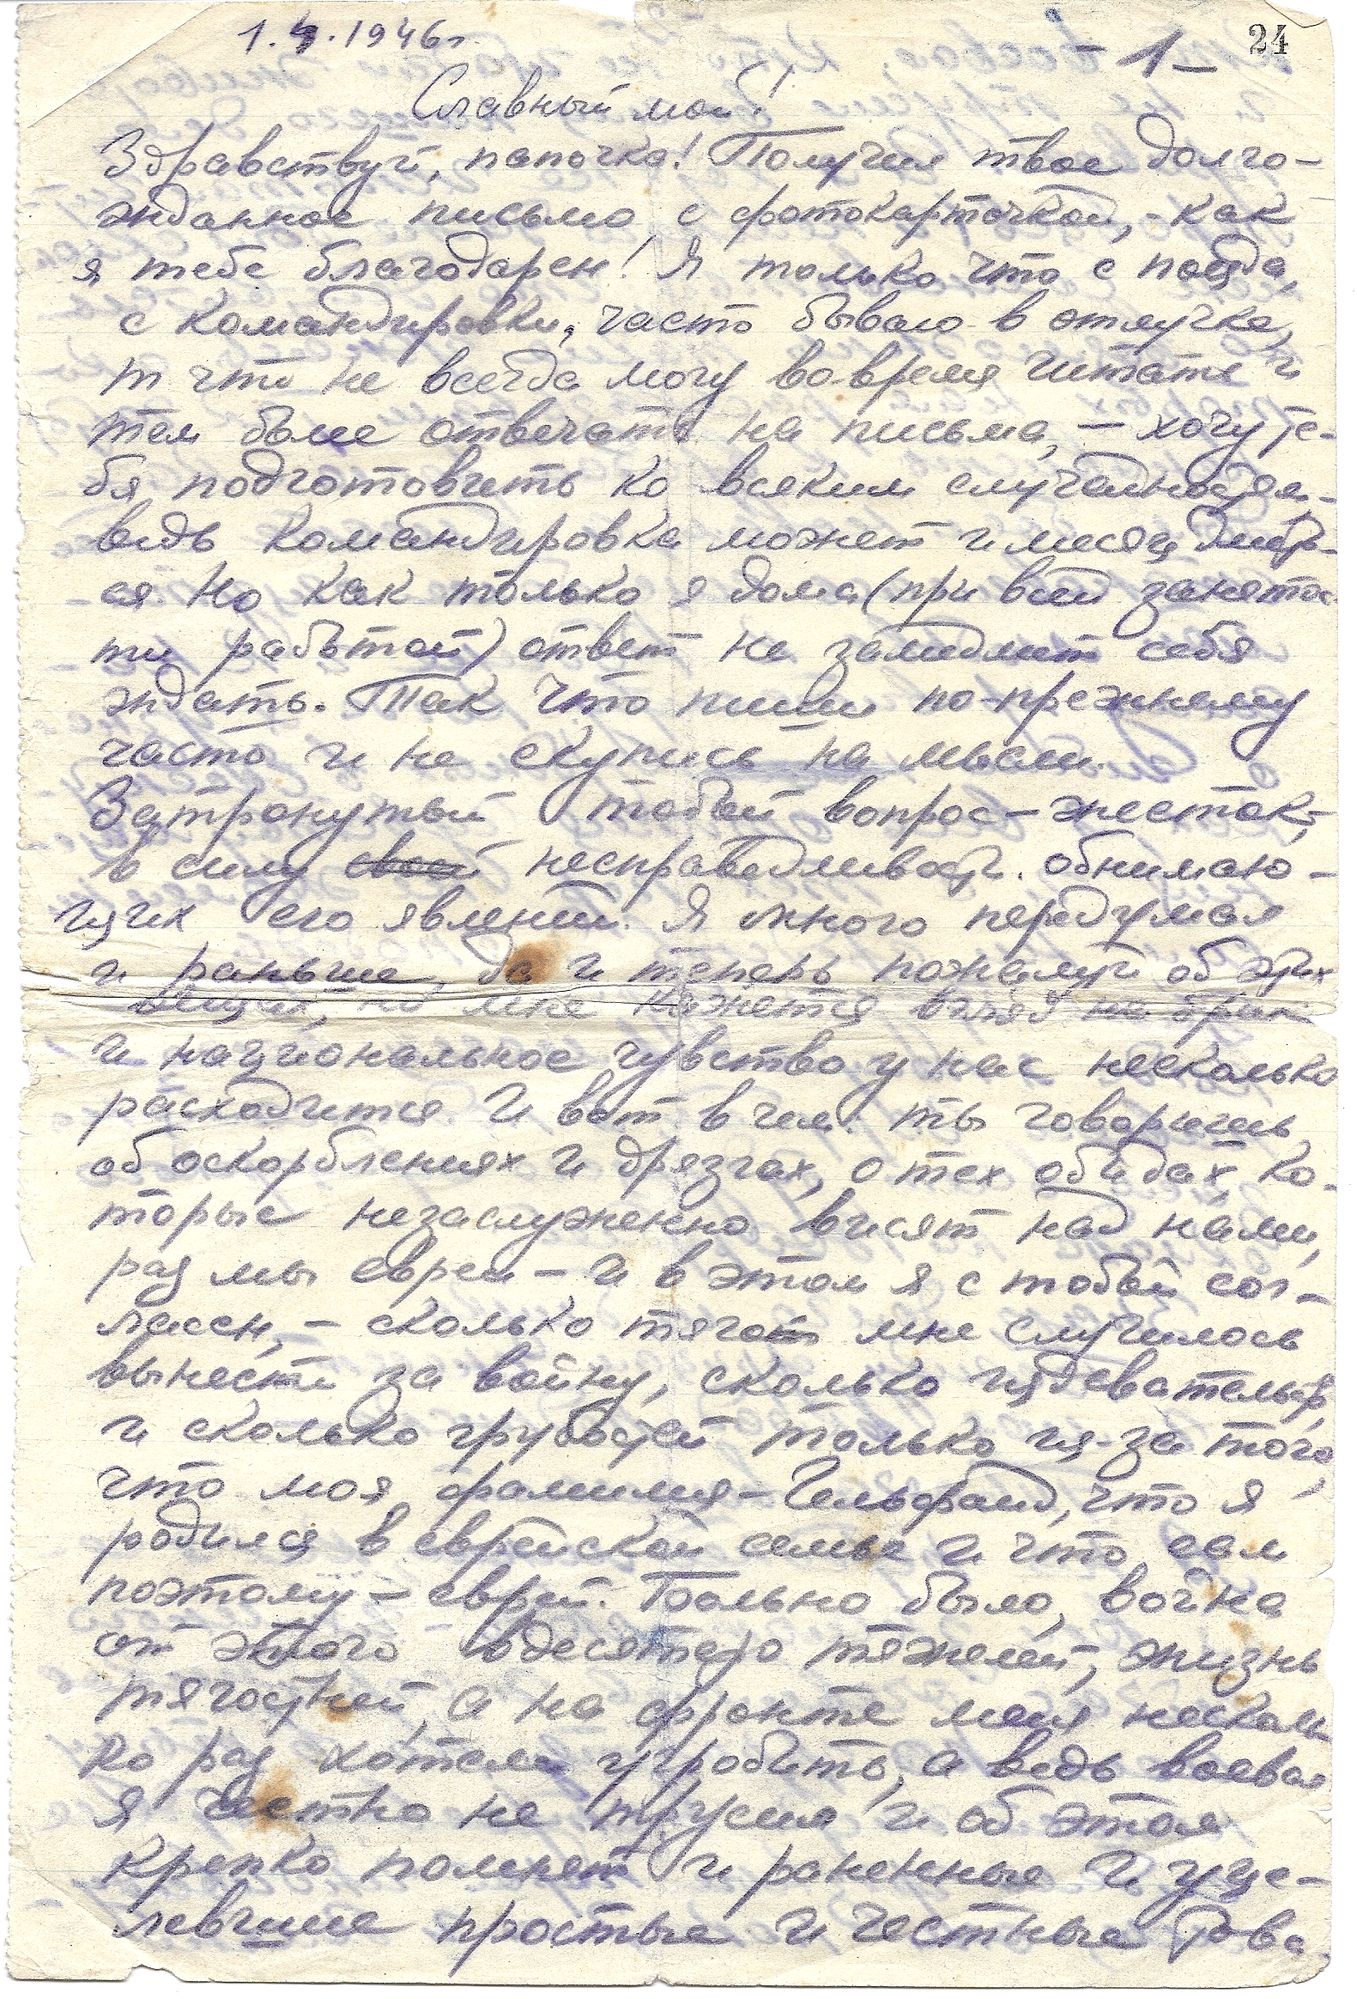 1.4.1946г.
- 1 -
24
Славный мой!
Здравствуй, папочка! Получил твое долго-
жданное письмо с фотокарточкой, - как
я тебе благодарен! Я только что с поезда,
с командировки, часто бываю в отлучке,
т что не всегда могу во-время читать и
тем более отвечать на письма, – хочу те-
бя подготовить ко всяким случайностям -
ведь командировка может и месяц длить-
ся. Но как только я дома (при всей занятос-
ти работой) ответ не замедлит себя
ждать. Так что пиши по-прежнему
часто и не скупись на мысли.
Затронутый тобой вопрос – жесток,
в силу своей несправедливости обнимаю-
щих его явлений. Я много передумал
и раньше, да и теперь пожалуй об этих
вещах, но мне кажется
и национальное чувство у нас несколько
расходится. И вот в чем. Ты говоришь
об оскорблениях и дрязгах, о тех обидах, ко-
торые незаслуженно висят над нами,
раз мы евреи – и в этом я с тобой сог-
ласен, – сколько тягот мне случилось
вынести за войну, сколько издевательств,
и сколько грубостей только из-за того,
что моя фамилия – Гельфанд, что я
родился в еврейской семье и что сам
поэтому – еврей. Больно было, война
от этого вдесятеро тяжелей, жизнь
тягостней, а на фронте меня несколь
ко раз хотели угробить, а ведь воевал
я честно не трусил и об этом
крепко помнят и раненные и уце-
левшие простые и честные това